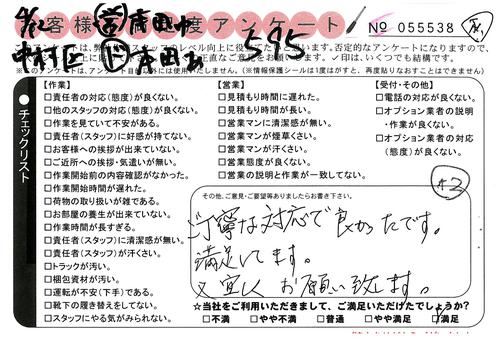 お客様満足度アンケート
No 055538
4/12
595
中村区
このアンケートは、弊社サービススタッフのレベル向上に役立てたいと思います。否定的なアンケートになりますので、
正直にご意見をお願いいたします。✓印は、いくつでも結構です。
※このアンケートは、アンケート以外には使用いたしません。(※情報保護シールは1度はがすと、再度貼りなおすことはできません)
チェックリスト
【作業】
□責任者の対応(態度)が良くない。
□他のスタッフの対応(態度)が良くない。
□作業を見ていて不安がある。
□責任者(スタッフ)に好感が持てない。
□お客様への挨拶が出来ていない。
□ご近所への挨拶・気遣いが無い。
□作業開始前の内容確認がなかった。
□作業開始時間が遅れた。
□荷物の取り扱いが雑である。
□お部屋の養生が出来ていない。
□作業時間が長すぎる。
□責任者(スタッフ)に清潔感が無い。
□責任者(スタッフ)が汗くさい。
□トラックが汚い。
□梱包資材が汚い。
□運転が不安(下手)である。
□靴下の履き替えをしてない。
□スタッフにやる気がみられない。
【営業】
□見積もり時間に遅れた。
□見積もり時間が長い。
□営業マンに清潔感が無い。
□営業マンが煙草くさい。
□営業マンが汗くさい。
□営業態度が良くない。
□営業の説明と作業が一致してない。
【受付・その他】
□電話の対応が良くない。
□オプション業者の説明
・作業が良くない。
□オプション業者の対応
(態度)が良くない。
その他、ご意見・ご要望等ありましたらお書き下さい。
丁寧な対応で良かったです。
満足してます。
又宜しくお願い致します。
☆当社をご利用いただきまして、ご満足いただけたでしょうか?
□不満 □やや不満 □普通 □やや満足 ☑満足